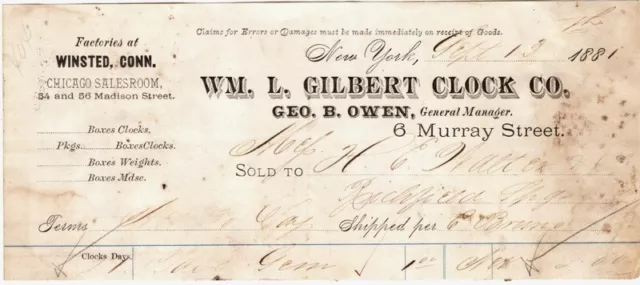 Claims for Errors or Damages must be made immediately on receipt of Goods.
Factories at
WINSTED, CONN.
CHICAGO SALESROOM,
54 and 56 Madison Street.
New York, Sept 13 1881
WM. L. GILBERT CLOCK CO.
GEO. B. OWEN, General Manager.
6 Murray Street.
Boxes Clocks.
Pkgs. Boxes Clocks.
Boxes Weights.
Boxes Mdse.
SOLD TO H. E.
Richfield
Terms Shipped per
Clocks Days. Gem 1.00